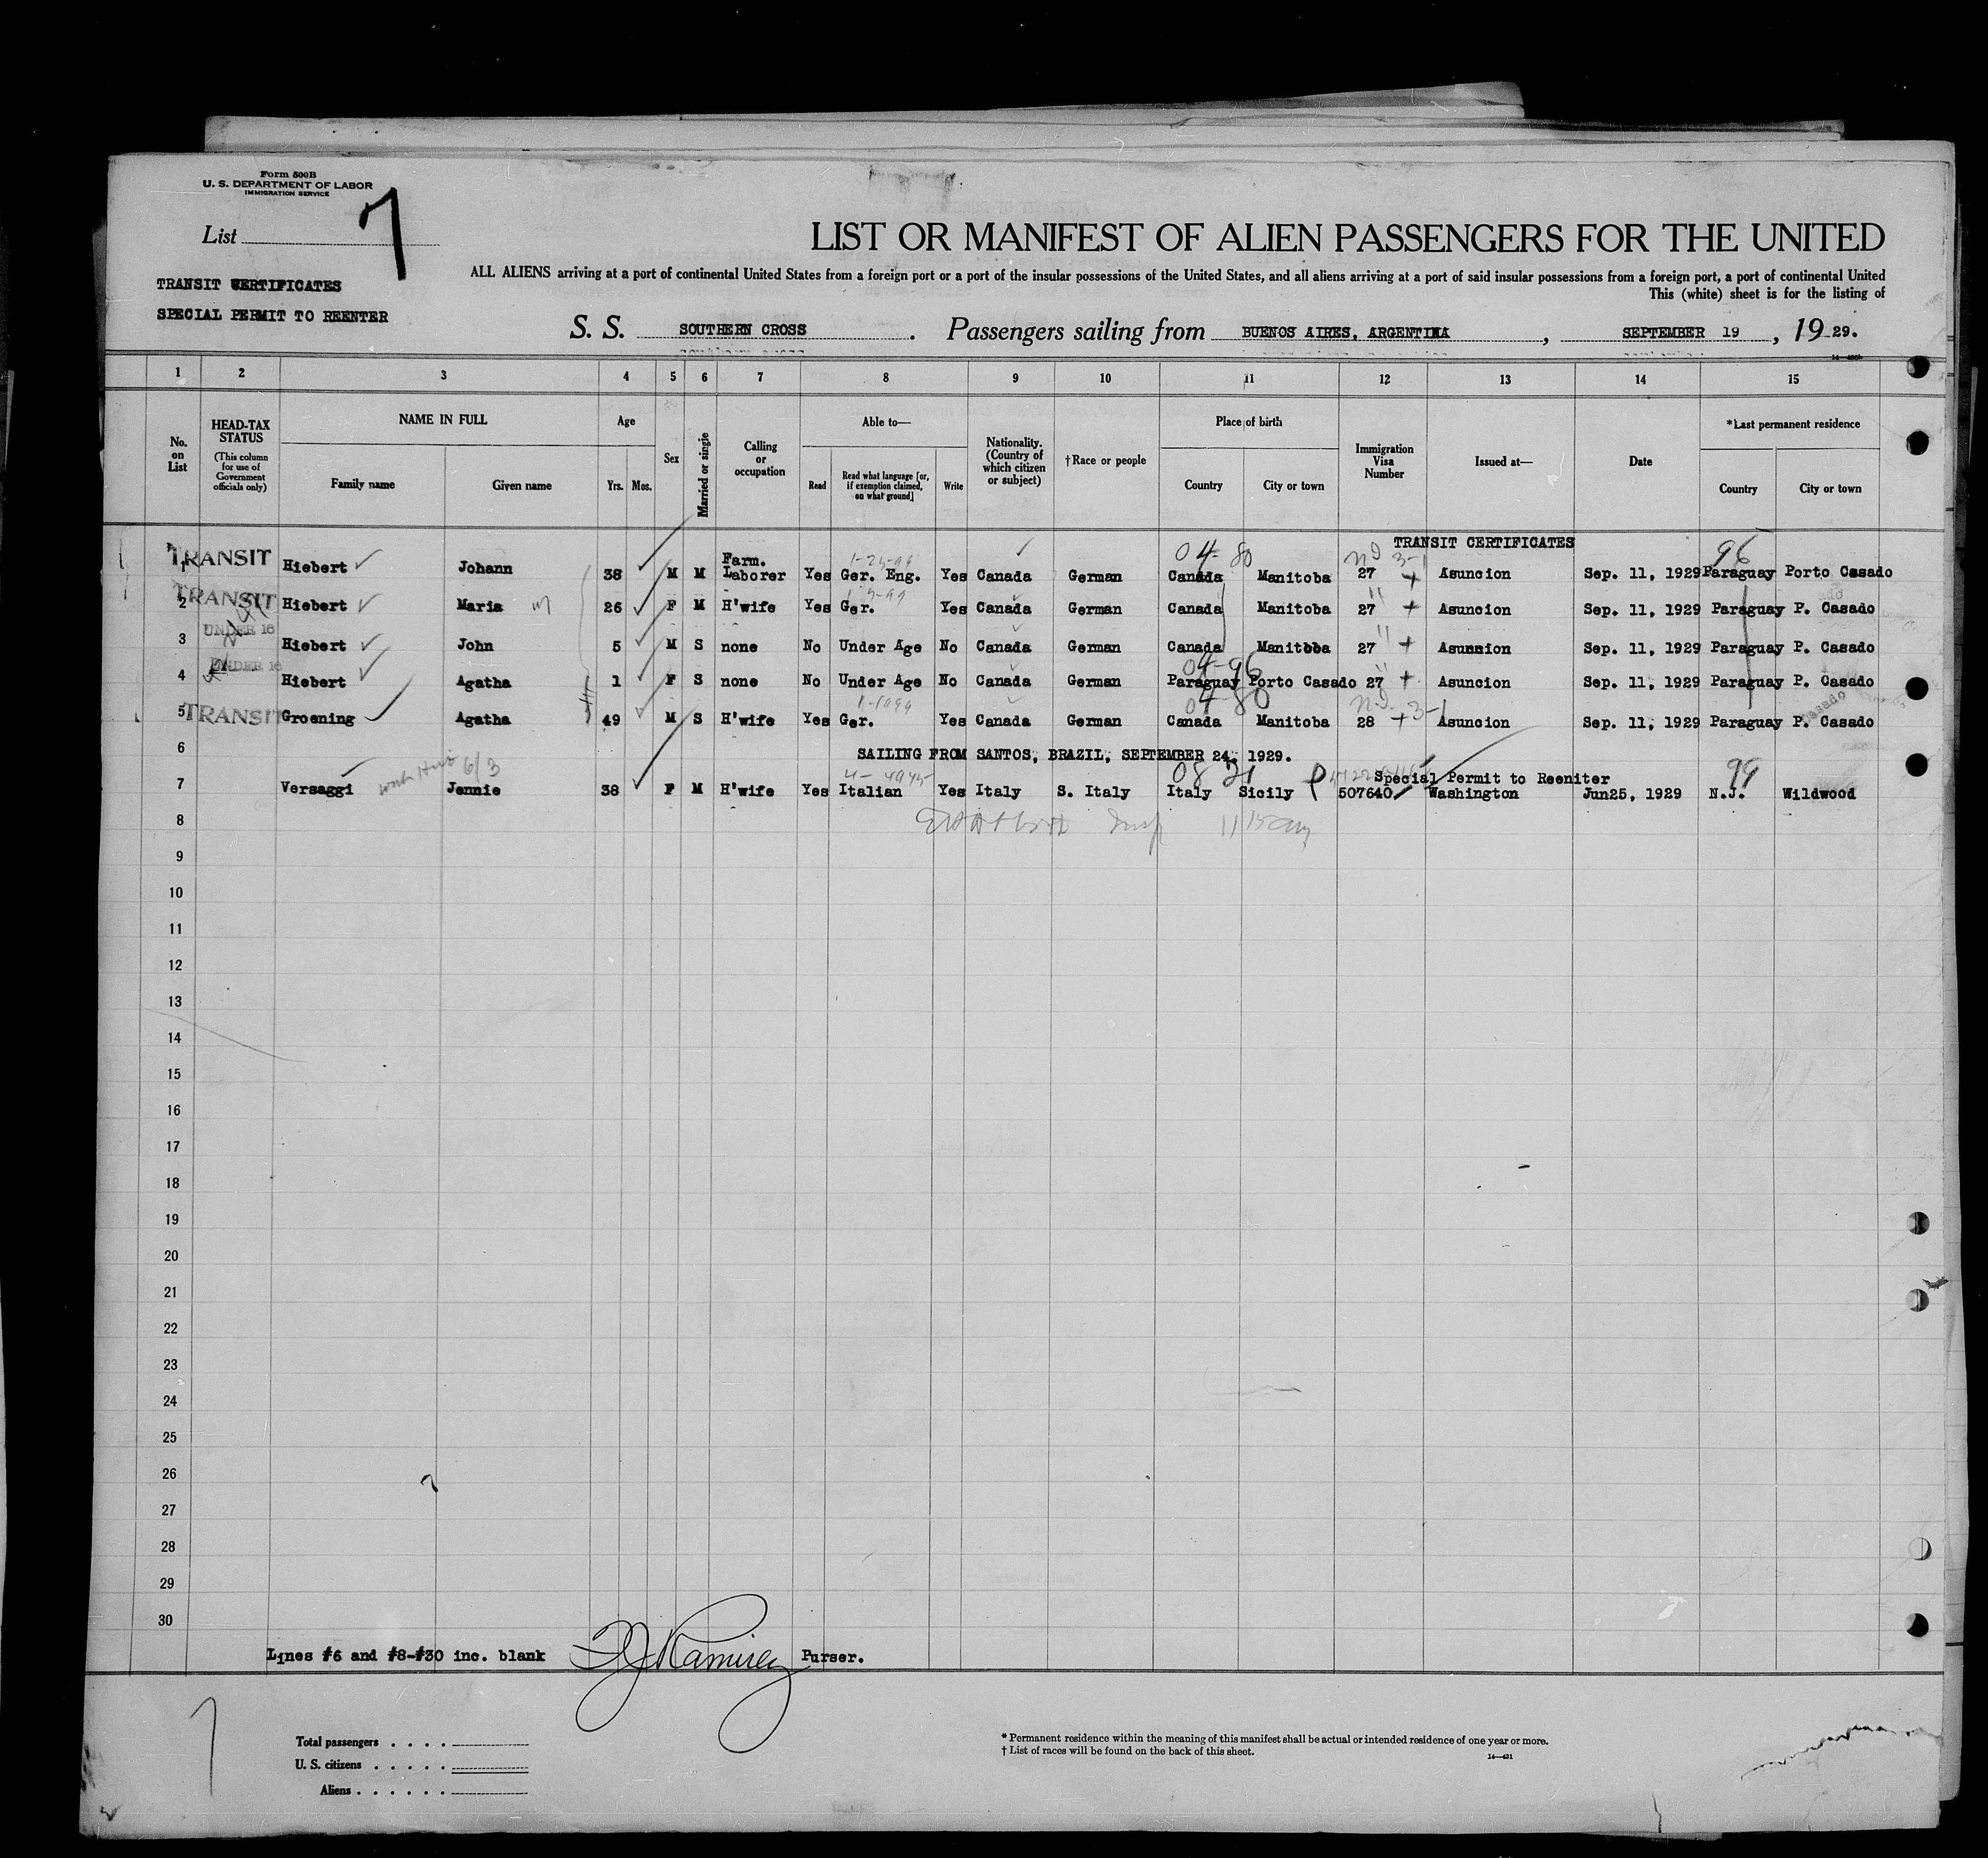 Form 500B
U. S. DEPARTMENT OF LABOR
IMMIGRATION SERVICE
List 7
LIST OR MANIFEST OF ALIEN PASSENGERS FOR THE UNITED
TRANSIT CERTIFICATES
SPECIAL PERMIT TO REENTER
ALL ALIENS arriving at a port of continental United States from a foreign port or a port of the insular possessions of the United States, and all aliens arriving at a port of said insular possessions from a foreign port, a port of continental United
This (white) sheet is for the listing of
S. S. SOUTHERN CROSS. Passengers sailing from BUENOS AIRES, ARGENTINA, SEPTEMBER 19, 1929.
1 2 3 4 5 6 7 8 9 10 11 12 13 14 15
No. on List
HEAD-TAX STATUS (This column for use of Government officials only)
NAME IN FULL Family name Given name
Age Yrs. Mos.
Sex
Married or single
Calling or occupation
Able to— Read Read what language [or, if exemption claimed, on what ground] Write
Nationality. (Country of which citizen or subject)
†Race or people
Place of birth Country City or town
Immigration Visa Number
Issued at—
Date
*Last permanent residence Country City or town
TRANSIT CERTIFICATES
04- 80 96
1 TRANSIT Hiebert Johann 38 M M Farm. Laborer Yes Ger. Eng. Yes Canada German Canada Manitoba 27 Asuncion Sep. 11, 1929 Paraguay Porto Casado
2 TRANSIT Hiebert Maria 26 F M H'wife Yes Ger. Yes Canada German Canada Manitoba 27 Asuncion Sep. 11, 1929 Paraguay P. Casado
3 UNDER 16 Hiebert John 5 M S none No Under Age No Canada German Canada Manitoba 27 Asuncion Sep. 11, 1929 Paraguay P. Casado
04-96
4 UNDER 16 Hiebert Agatha 1 F S none No Under Age No Canada German Paraguay Porto Casado 27 Asuncion Sep. 11, 1929 Paraguay P. Casado
04-80
5 TRANSIT Groening Agatha 49 M S H'wife Yes Ger. Yes Canada German Canada Manitoba 28 Asuncion Sep. 11, 1929 Paraguay P. Casado
6 SAILING FROM SANTOS, BRAZIL, SEPTEMBER 24, 1929.
Special Permit to Reeniter 99
7 Versaggi Jennie 38 F M H'wife Yes Italian Yes Italy S. Italy Italy Sicily 507640 Washington Jun25, 1929 N.J. Wildwood
8
9
10
11
12
13
14
15
16
17
18
19
20
21
22
23
24
25
26
27
28
29
30
Lines #6 and #8-#30 inc. blank Ramirez Purser.
Total passengers . . . .
U. S. citizens . . . . .
Aliens . . . . . .
* Permanent residence within the meaning of this manifest shall be actual or intended residence of one year or more.
† List of races will be found on the back of this sheet.
14—431